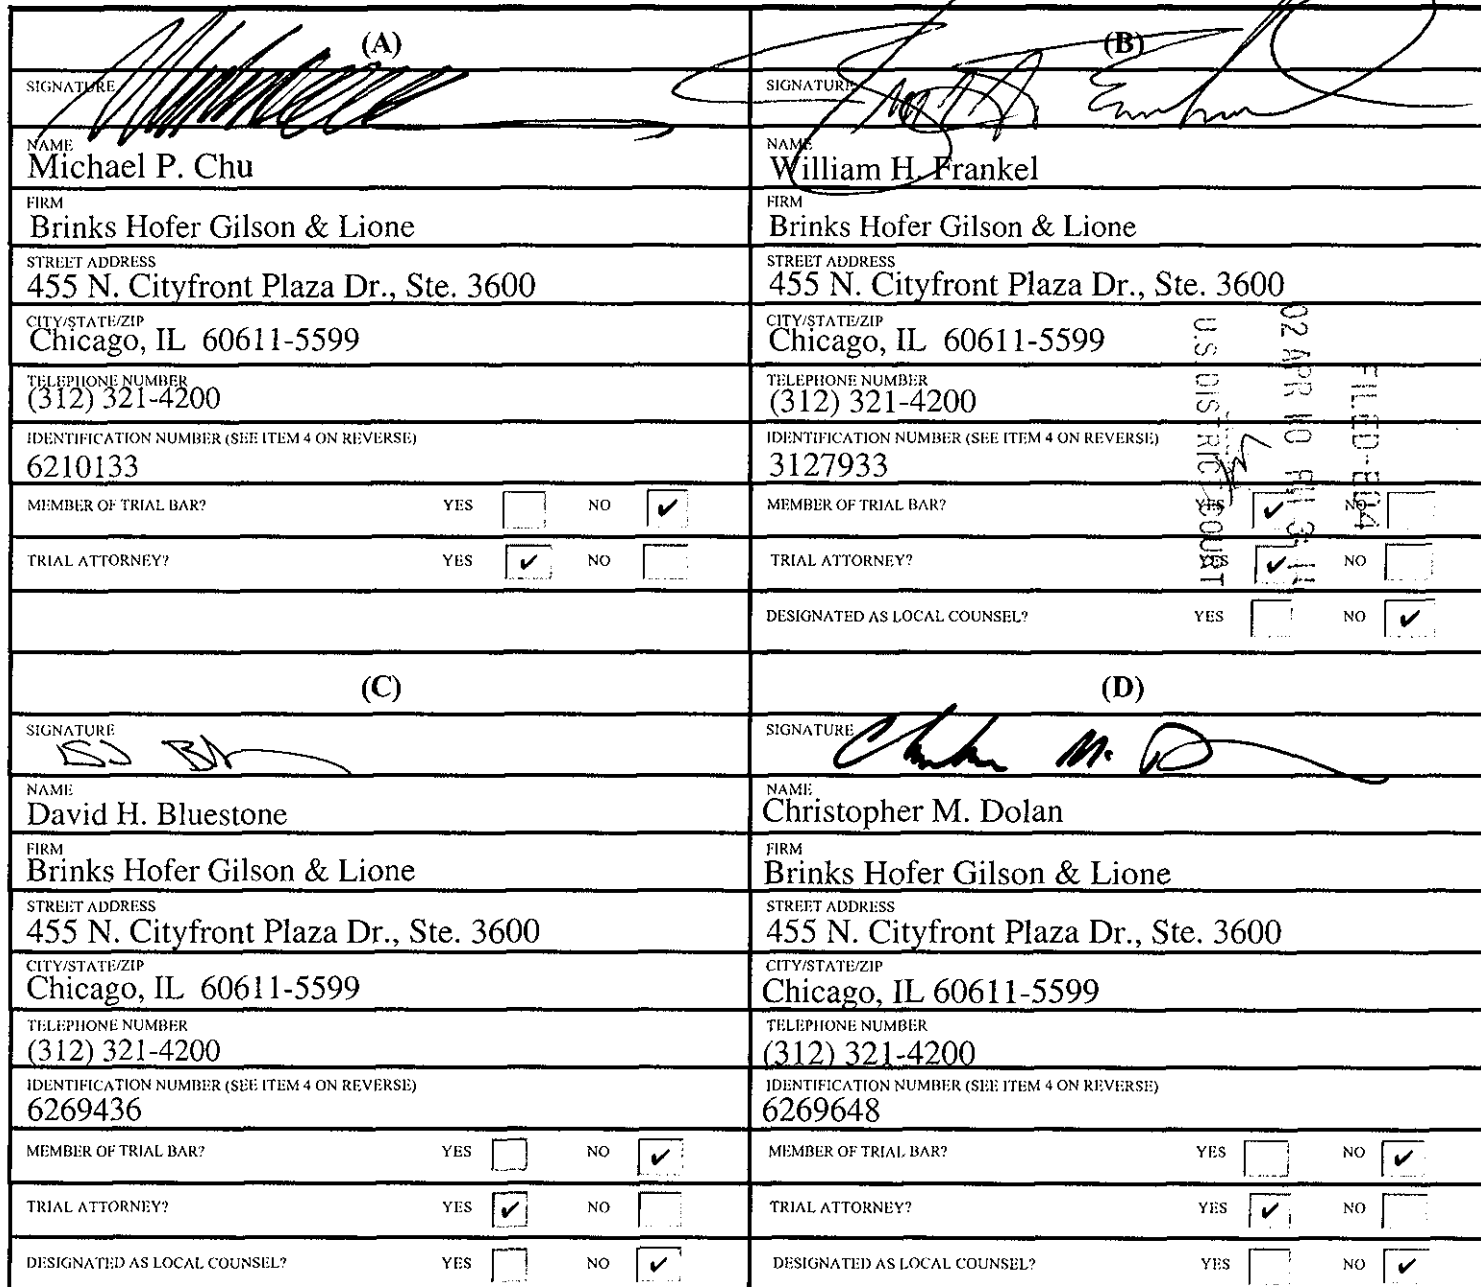 (A)
SIGNATURE
NAME
Michael P. Chu
FIRM
Brinks Hofer Gilson & Lione
STREET ADDRESS
455 N. Cityfront Plaza Dr., Ste. 3600
CITY/STATE/ZIP
Chicago, IL 60611-5599
TELEPHONE NUMBER
(312) 321-4200
IDENTIFICATION NUMBER (SEE ITEM 4 ON REVERSE)
6210133
MEMBER OF TRIAL BAR? YES NO ✔
TRIAL ATTORNEY? YES ✔ NO
(B)
SIGNATURE
NAME
William H. Frankel
FIRM
Brinks Hofer Gilson & Lione
STREET ADDRESS
455 N. Cityfront Plaza Dr., Ste. 3600
CITY/STATE/ZIP
Chicago, IL 60611-5599
TELEPHONE NUMBER
(312) 321-4200
IDENTIFICATION NUMBER (SEE ITEM 4 ON REVERSE)
3127933
MEMBER OF TRIAL BAR? YES ✔ NO
TRIAL ATTORNEY? YES ✔ NO
DESIGNATED AS LOCAL COUNSEL? YES NO ✔
02 APR 10
U.S. DISTRICT COURT
(C)
SIGNATURE
NAME
David H. Bluestone
FIRM
Brinks Hofer Gilson & Lione
STREET ADDRESS
455 N. Cityfront Plaza Dr., Ste. 3600
CITY/STATE/ZIP
Chicago, IL 60611-5599
TELEPHONE NUMBER
(312) 321-4200
IDENTIFICATION NUMBER (SEE ITEM 4 ON REVERSE)
6269436
MEMBER OF TRIAL BAR? YES NO ✔
TRIAL ATTORNEY? YES ✔ NO
DESIGNATED AS LOCAL COUNSEL? YES NO ✔
(D)
SIGNATURE
NAME
Christopher M. Dolan
FIRM
Brinks Hofer Gilson & Lione
STREET ADDRESS
455 N. Cityfront Plaza Dr., Ste. 3600
CITY/STATE/ZIP
Chicago, IL 60611-5599
TELEPHONE NUMBER
(312) 321-4200
IDENTIFICATION NUMBER (SEE ITEM 4 ON REVERSE)
6269648
MEMBER OF TRIAL BAR? YES NO ✔
TRIAL ATTORNEY? YES ✔ NO
DESIGNATED AS LOCAL COUNSEL? YES NO ✔